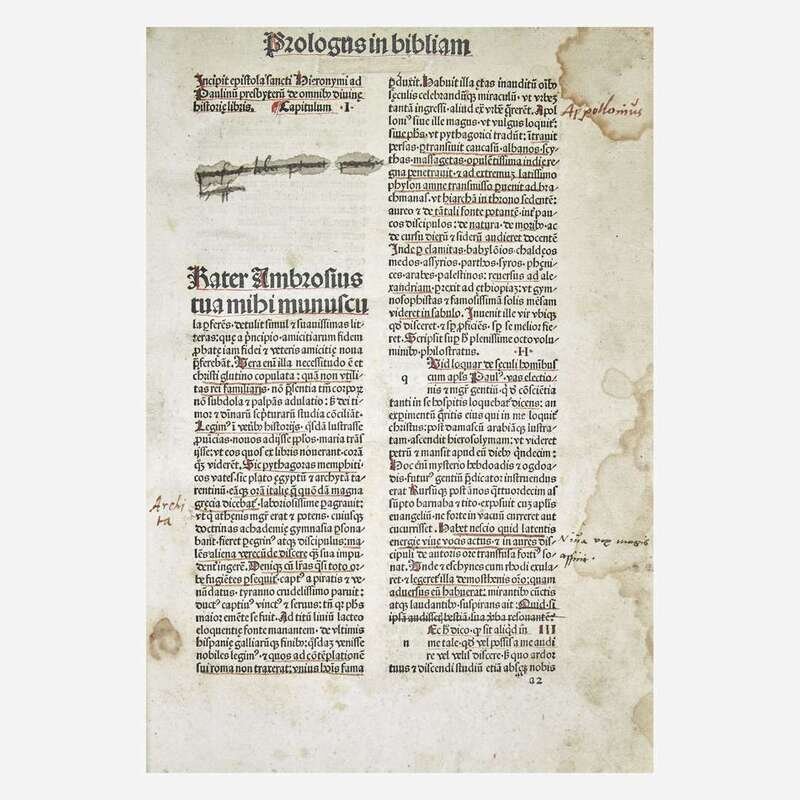 Prologus in bibliam
Incipit epistola sancti Hieronymi ad
Paulinū presbyterū de omnibꝰ diuine
historie libris. Capitulum .I.
Rater Ambrosius
tua mihi munuscu
la ꝑferēs. detulit simul ⁊ suauissimas lit-
teras: que a prīcipio amicitiarum fidem
ꝓbate iam fidei ⁊ veteris amicitie noua
p̄ferebāt. Uera enī illa necessitudo ē et
christi glutino copulata: quā non vtili-
tas rei familiaris. nō p̄sentia tm̄ corpoꝝ
nō subdola ⁊ palpās adulatio: sꝫ dei ti-
mor ⁊ diuinarū scripturarū studia cōciliāt.
Legimꝰ ī veteribꝰ historijs. quosdā lustrasse
ꝓuincias. nouos adijsse pplos. maria trās
ijsse: vt eos quos ex libris nouerant. corā
qꝫ viderēt. Sic pythagoras memphiti
cos vates. sic plato egyptū ⁊ archytā ta-
rentinū. eāqꝫ orā italie q̄ quōdā magna
grecia dicebat. laboriosissime ꝑagrauit:
vt q̄ athenis mgr̄ erat ⁊ potens. cuiusqꝫ
doctrinas achademie gymnasia ꝑsona-
bant. fieret ꝑegrin? atqꝫ discipulus: ma-
lēs aliena verecūde discere qꝫ sua impu
dent̄ ingere. Deniqꝫ cū lr̄as qͣsi toto or-
be fugiētes ꝑsequit. captꝰ a piratis ⁊ ve-
nūdatus. tyranno crudelissimo paruit:
ductꝰ captiuꝰ vinctꝰ ⁊ seruus: tn̄ qꝛ phs
maior emēte se fuit. Ad titū liuiū lacteo
eloquentie fonte manantem. de vltimis
hispanie galliarūqꝫ finibꝰ: quosdā venisse
nobiles legimꝰ. ⁊ quos ad cōtēplationē
sui roma non traxerat: vnius hoīs fama
ꝑduxit. Habuit illa etas inauditū oībꝰ
seculis celebrandūqꝫ miraculū: vt vrbeꝫ
tantā ingressi. aliud ex̄ vrbē q̄rerēt. Apol
lonius siue ille magus. vt vulgus loquit:
siue phs. vt pythagorici tradūt: ītrauit
persas. ꝑtransiuit caucasū. albanos. scy-
thas. massagetas. opulētissima indie re-
gna penetrauit. ⁊ ad extremuꝫ latissimo
phylon amne transmisso ꝑuenit ad bra-
chmanas. vt hiarchā in throno sedentē:
aureo ⁊ de tātali fonte potantē. inter pau-
cos discipulos: de natura. de moribꝰ. ac
de cursu dierū ⁊ siderū audiret docentē
Inde ꝑ elamitas. babylōios. chaldeos
medos. assyrios. parthos. syros. pheni-
ces. arabes. palestinos: reuersus ad ale-
xandriam. ꝑrexit ad ethiopiaꝫ: vt gym-
nosophistas ⁊ famosissimā solis mēsam
videret in sabulo. Inuenit ille vir vbiqꝫ
qd̄ disceret. ⁊ sꝑ ꝓficiēs. sꝑ se melior fie-
ret. Scripsit suꝑ h̄ plenissime octo volu-
minibꝰ philostratus. .II.
q Uid loquar de seculi hominibꝰ
cum apls Paulꝰ. vas electio-
nis ⁊ mgr̄ gentiū. q̄ de cōsciētia
tanti in se hospitis loquebat dicens: an
exꝑimentū q̄ritis eius qui in me loquit
christus: post damascū arabiāqꝫ lustra-
tam. ascendit hierosolymam: vt videret
petrū ⁊ mansit apud eū diebꝰ q̄ndecim:
Hoc enī mysterio hebdoadis ⁊ ogdoa-
dis. futurꝰ gentiū p̄dicator instruendus
erat Rursūqꝫ post ānos quattuordecim as
sūpto barnaba ⁊ tito. exposuit cuꝫ aplis
euangeliū. ne forte in vacuū curreret aut
cucurrisset. Habet nescio quid latentis
energie viue vocis actus. ⁊ in aures dis-
cipuli de autoris ore transfusa fortꝰ so-
nat. Unde ⁊ eschynes cum rhodi exula-
ret. ⁊ legeret illa demosthenis oīo: quam
aduersus eū habuerat: mirantibꝰ cūctis
atqꝫ laudantibꝰ. suspirans ait: Quid si
ipsā audissetꝭ bestiā. sua ꝟba resonantē?
n Ec h̄ dico. qꝛ sit aliqd in III
me tale. qd̄ vel possis a me audi
re vel velis discere. sꝫ quo ardor
tuus ⁊ discendi studiū etiā absqꝫ nobis
a2
Appollonius
Archi
ta
Viua vox magis
afficit.